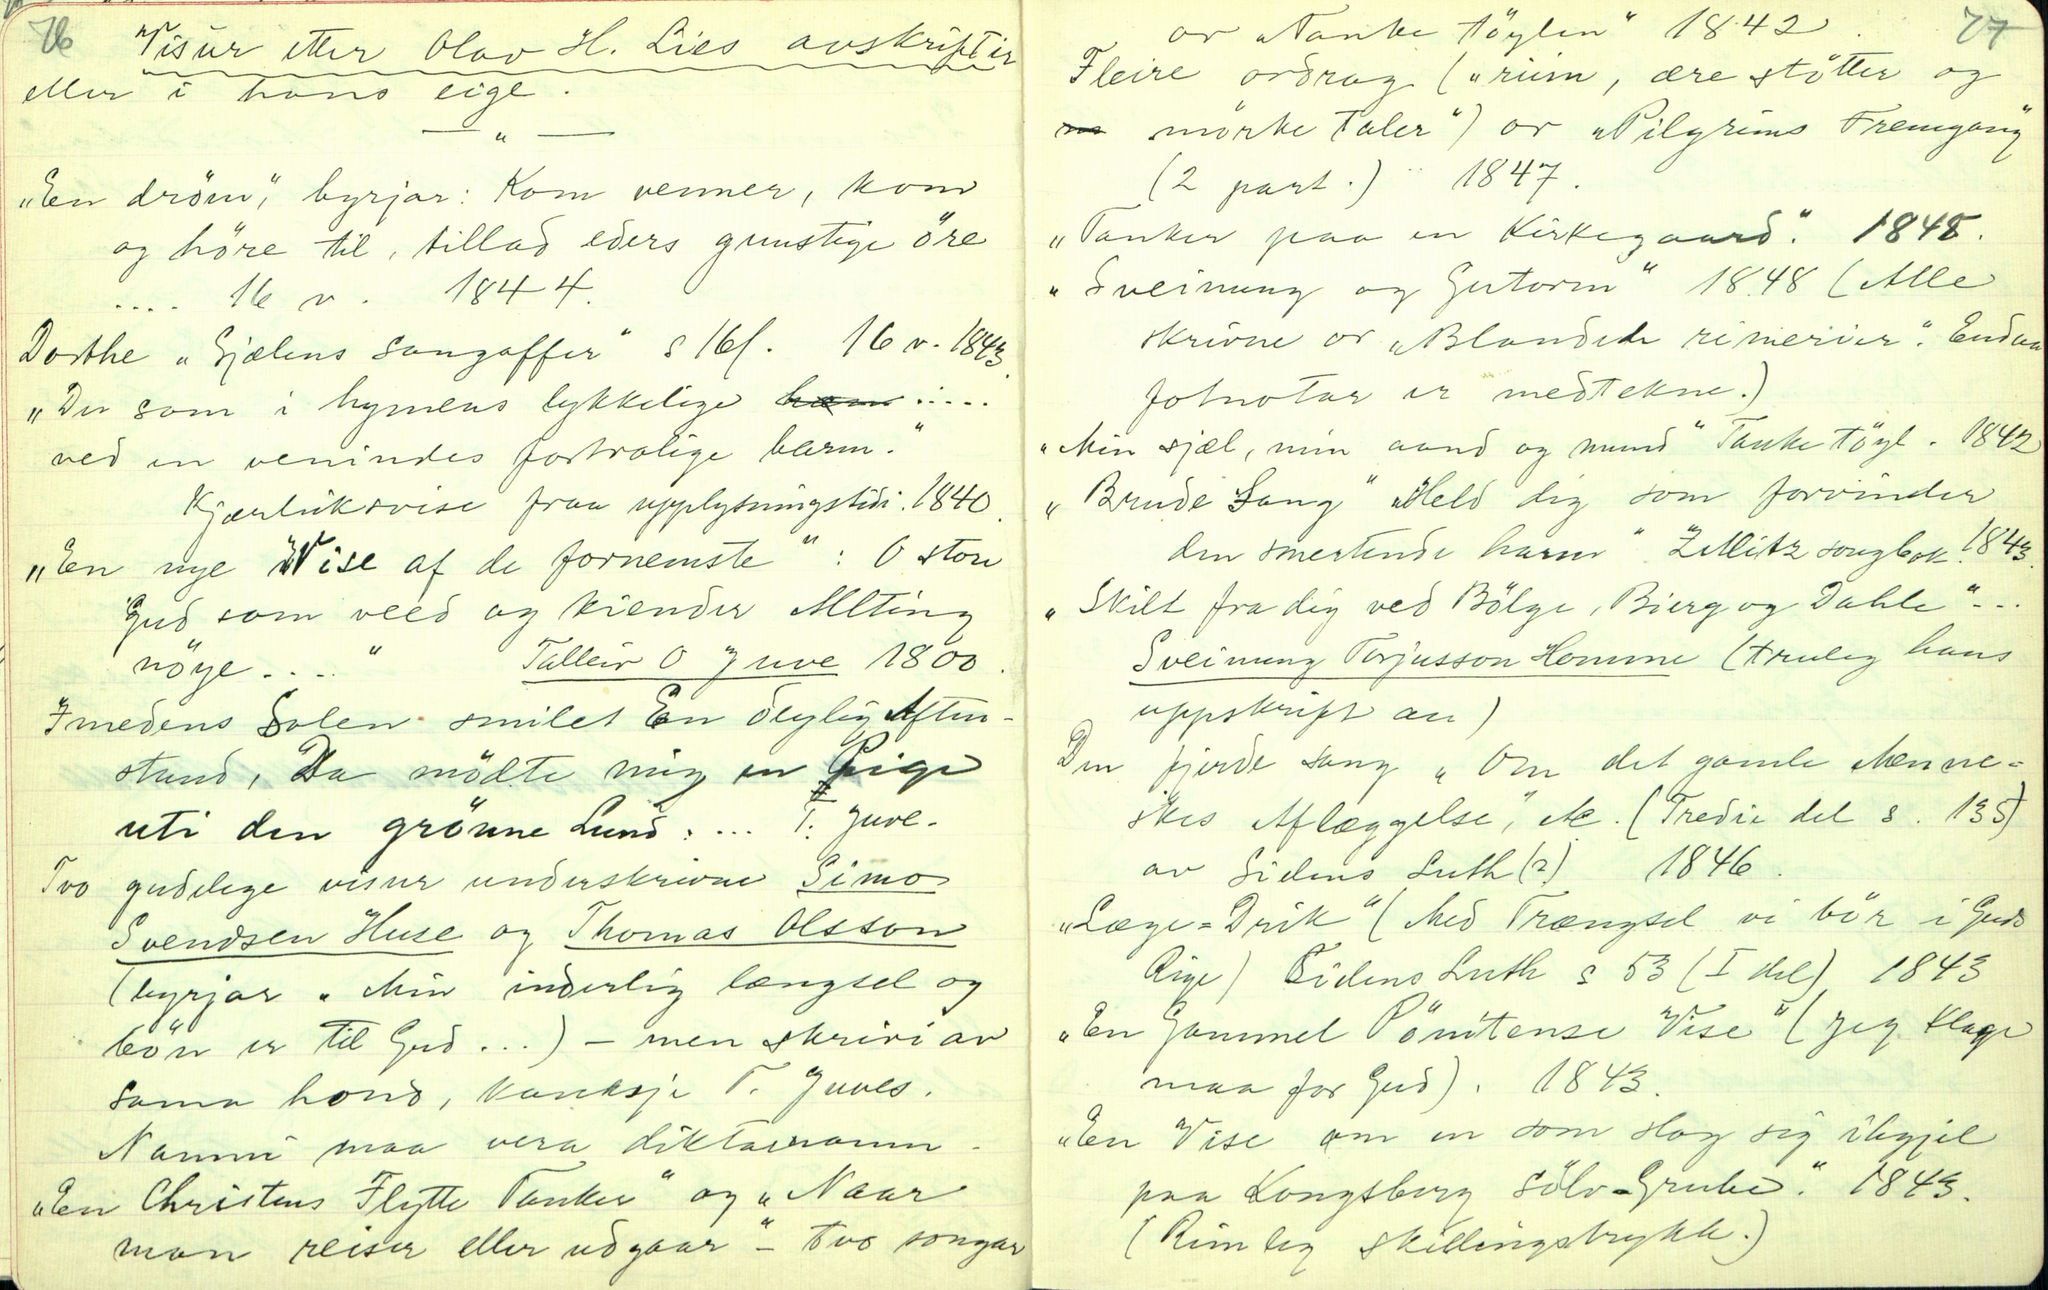 76
Visur etter Olav H. Lies avskrifter
eller i hans eige.
— " —
„En dröm", byrjar: Kom venner, kom
og höre til, tillad eders gunstige öre
.... 16 v. 1844.
Dorthe „Sjælens sangoffer" s 16f. 16 v. 1843.
„Du som i hymens lykkelige .....
ved en venindes fortrolige barm."
Kjærleiksvise fraa upplysningstidi. 1840.
„En nye Vise af de fornemste": O store
Gud som veed og kiender Alting
nöye...." Talleiv O Juve 1800.
Imedens Solen smilet En deylig Aften-
stund, Da mödte mig en Pige
uti den grönne Lund:... T. Juve.
Tvo gudelege visur underskrivne Simo
Svendsen Huse og Thomas Olsson
(byrjar „Min inderlig længsel og
bön er til Gud...) – men skrivi av
sama hond, kanksje T. Juves.
Namni maa vera diktarnamn.
„En Christens Flytte Tanker" og „Naar
man reiser eller udgaar" – tvo songar
77
or „Tanke töylen" 1842.
Fleire ordrag („rim, ære støtter og
mörke taler") or „Pilgrims Fremgang"
(2 part.) 1847.
„Tanker paa en Kirkegaard". 1848.
„Sveinung og Gutorm" 1848 (Alle
skrivne or „Blandede rimerier". Endaa
fotnotar er medtekne.)
„Min sjæl, min aand og mund" Tanke töyl. 1842
„Brude Sang" „Held dig som forvinder
den smertende harm" Zetlitz songbok. 1843.
„Skilt fra dig ved Bölge, Bierg og Dahle"...
Sveinung Torjusson Homme (truleg hans
uppskrift au)
Den fjerde sang „Om det gamle Menne-
skes Aflæggelse", etc. (Tredie del s. 135)
av Sidens Luth (2) 1846.
„Læge=Drik" (Med Trængsel vi bör i Guds
Rige) Sidens Luth s 53 (I del) 1843
„En Gammel Pönitense Vise" (Jeg klage
maa for Gud). 1843.
„En Vise om en som slog sig ihgjel
paa Kongsberg Sölv-Grube." 1843.
(Rimleg skillingstrykk.)